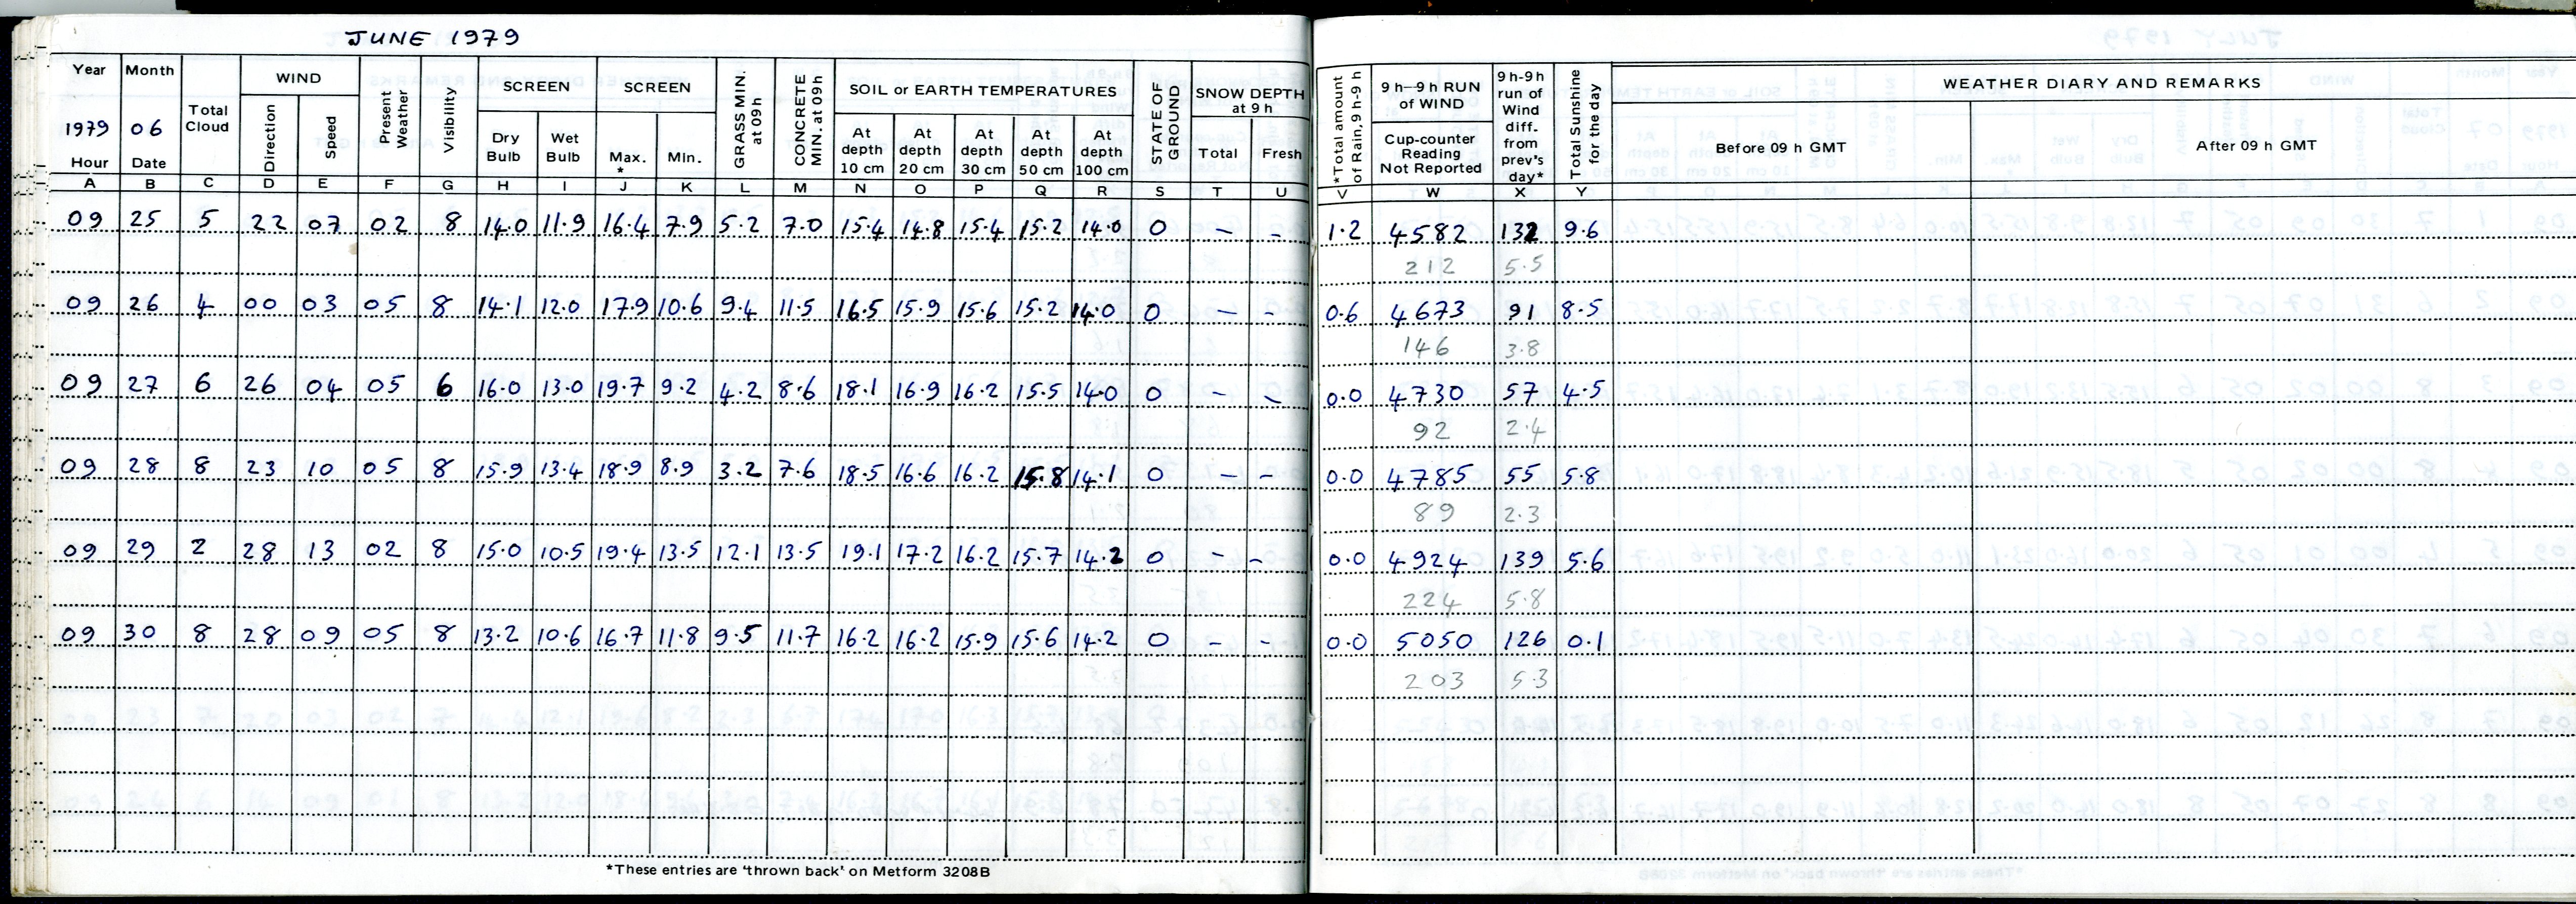 JUNE 1979
Year Month Total Cloud WIND Present Weather Visibility SCREEN SCREEN GRASS MIN. at 09h CONCRETE MIN. at 09h SOIL or EARTH TEMPERATURES STATE OF GROUND SNOW DEPTH at 9 h *Total amount of Rain, 9h-9 h 9 h—9 h RUN of WIND 9 h-9 h run of Wind diff. from prev's day* Total Sunshine for the day WEATHER DIARY AND REMARKS
1979 06 Direction Speed Dry Bulb Wet Bulb Max. * Min. At depth 10 cm At depth 20 cm At depth 30 cm At depth 50 cm At depth 100 cm Total Fresh Cup-counter Reading Not Reported Before 09 h GMT After 09 h GMT
Hour Date
A B C D E F G H I J K L M N O P Q R S T U V W X Y
09 25 5 22 07 02 8 14.0 11.9 16.4 7.9 5.2 7.0 15.4 14.8 15.4 15.2 14.0 0 – – 1.2 4582 132 9.6
212 5.5
09 26 4 00 03 05 8 14.1 12.0 17.9 10.6 9.4 11.5 16.5 15.9 15.6 15.2 14.0 0 – – 0.6 4673 91 8.5
146 3.8
09 27 6 26 04 05 6 16.0 13.0 19.7 9.2 4.2 8.6 18.1 16.9 16.2 15.5 14.0 0 – – 0.0 4730 57 4.5
92 2.4
09 28 8 23 10 05 8 15.9 13.4 18.9 8.9 3.2 7.6 18.5 16.6 16.2 15.8 14.1 0 – – 0.0 4785 55 5.8
89 2.3
09 29 2 28 13 02 8 15.0 10.5 19.4 13.5 12.1 13.5 19.1 17.2 16.2 15.7 14.2 0 – – 0.0 4924 139 5.6
224 5.8
09 30 8 28 09 05 8 13.2 10.6 16.7 11.8 9.5 11.7 16.2 16.2 15.9 15.6 14.2 0 – – 0.0 5050 126 0.1
203 5.3
*These entries are 'thrown back' on Metform 3208B